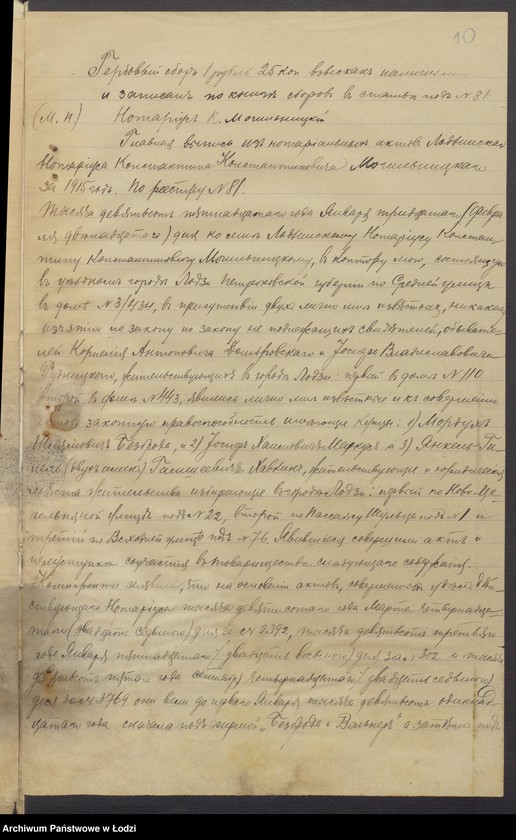 10
Гербовый сборъ 1 рубль 25 коп взысканъ наличными
и записанъ по книгѣ сборовъ въ статьи подъ № 81
(М. п.) Нотаріусъ К. Могильницкій
Главная выпись изъ нотаріальныхъ актовъ Лодзинскаго
Нотаріуса Константина Константиновича Могильницкаго
за 1915 годъ. По реестру № 81.
Тысяча девятьсотъ пятнадцатаго года Января тридцатаго (февра
ля двѣнадцатаго) дня ко мнѣ Лодзинскому Нотаріусу Констан
тину Константиновичу Могильницкому, въ контору мою, состоящую
въ уѣздномъ городѣ Лодзи Петроковской губерніи по Средней улицѣ
въ домѣ № 3/434, въ присутствіи двухъ лично мнѣ извѣстныхъ, никакому
изъятію по закону по закону не подлежащихъ свидѣтелей, обывате
лей Корнелія Антоновича и Іосифа Владиславовича
Рудницкаго, жительствующихъ въ городѣ Лодзи: первый въ домѣ № 110
второй въ домѣ № 443, явились лично мнѣ извѣстные и къ совершенію
законную правоспособность имѣющіе купцы: 1) Мордухъ
Безбродо, и 2) Іосифъ Хаимовичъ Маркусъ и 3) Янкель-Ги
(двухъ именъ) жительствующіе и юридическія
мѣста жительства избирающіе въ городѣ Лодзи: первый по Ново-Це
гельняной улицѣ подъ № 22, второй по Пассажу Шульца подъ № 1 и
третій по Всходней улицѣ подъ № 76. Явившіеся совершили актъ о
переуступкѣ соучастія въ товариществѣ слѣдующаго содержанія.
Компаренты заявили, что на основаніи актовъ, совершенныхъ у дѣй
ствующаго Нотаріуса тысяча девятисотаго года Марта четырнадца
таго (двадцать седьмого) дня за № 2392, тысяча девятьсотъ третьяго
года Января пятнадцатаго (двадцать восьмого) дня за № 302 и тысяча
девятьсотъ пятаго года сентября четырнадцатаго (двадцать седьмого)
дня за № 3769 они вели до перваго Января тысяча девятьсотъ одиннад
цатаго года сначала подъ фирмой „Безбродо и Вальнеръ" а затѣмъ подъ
Archiwum Państwowe w Łodzi